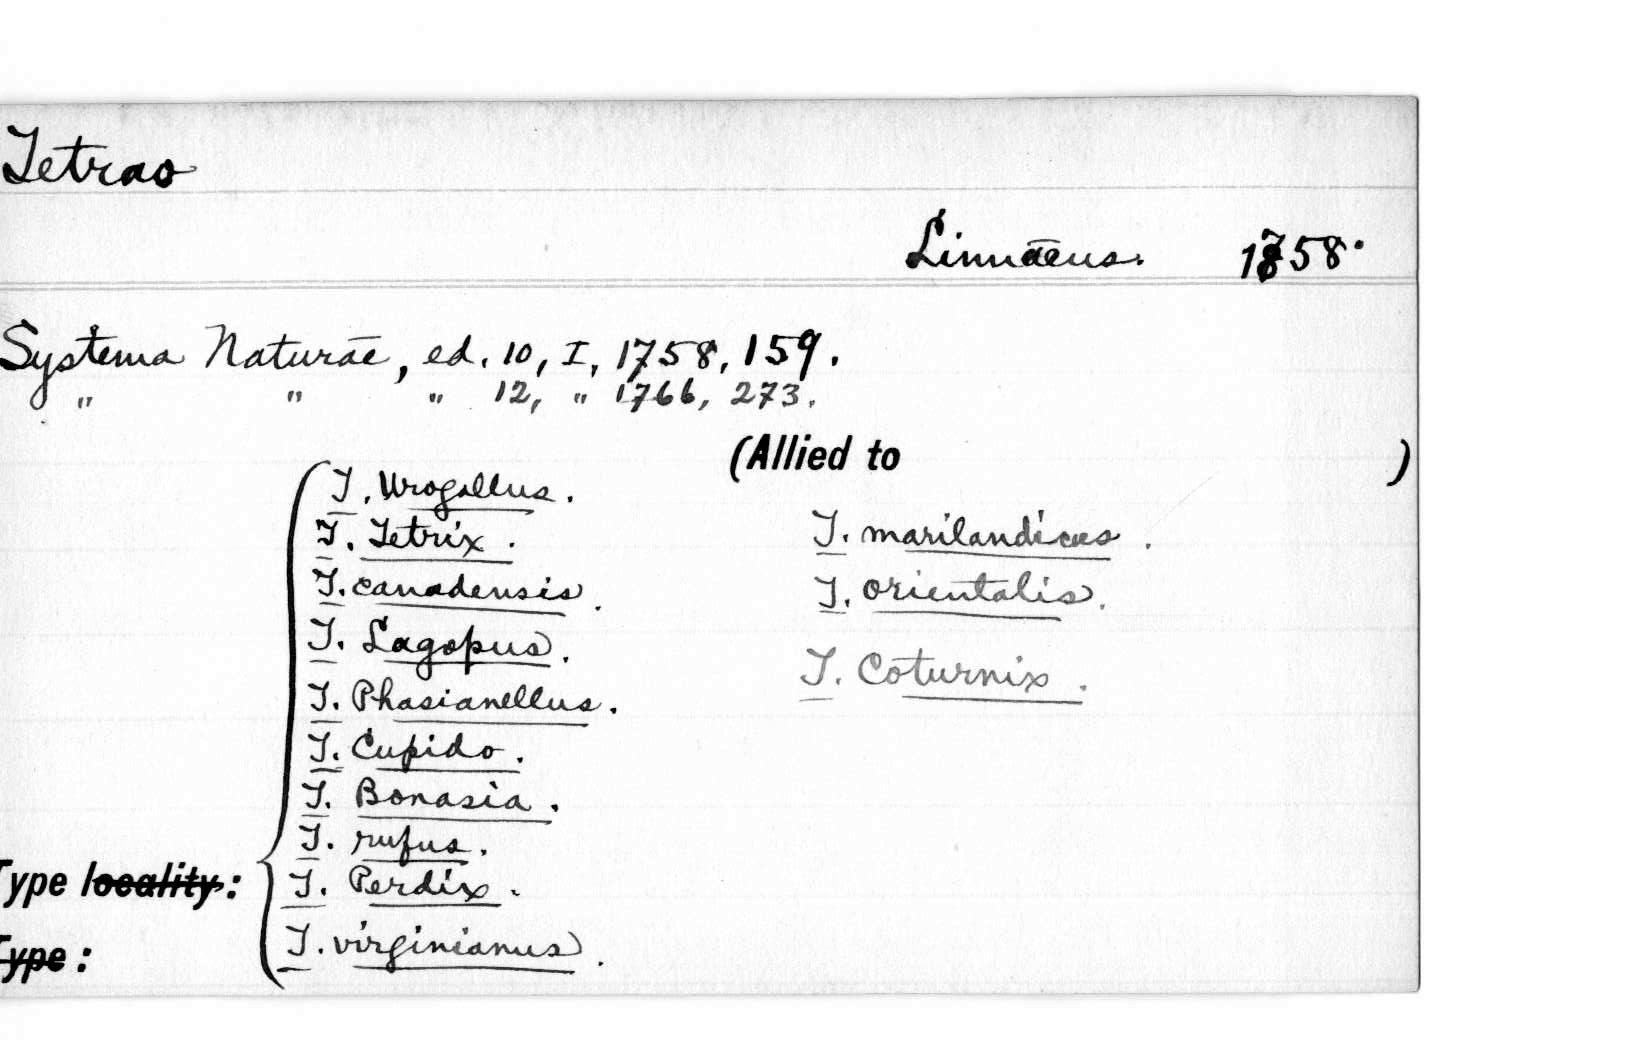 Tetrao
Linnaeus. 1758.
Systema Naturae, ed. 10, I, 1758, 159.
" " " 12, " 1766, 273.
(Allied to )
T. Urogallus.
T. Tetrix.
T. canadensis.
T. Lagopus.
T. Phasianellus.
T. Cupido.
T. Bonasia.
T. rufus.
T. Perdix.
T. virginianus.
T. marilandicus.
T. orientalis.
T. Coturnix.
Type locality:
Type: